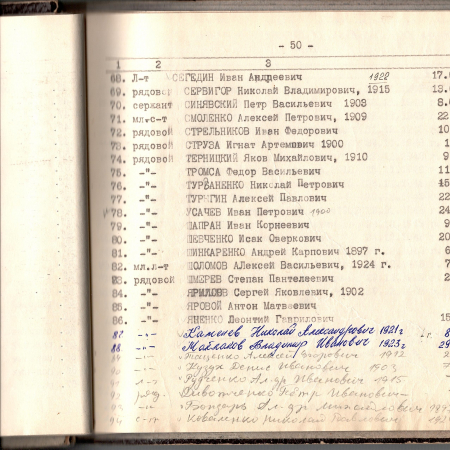 - 50 -
1 2 3
68. Л-т СЕГЕДИН Иван Андреевич 1922 17.0
69. рядовой СЕРВИГОР Николай Владимирович, 1915 13.0
70. сержант СИНЯВСКИЙ Петр Васильевич 1903 8.0
71. мл.с-т СМОЛЕНКО Алексей Петрович, 1909 22
72. рядовой СТРЕЛЬНИКОВ Иван Федорович 10
73. рядовой СТРУЗА Игнат Артемович 1900 1
74. рядовой ТЕРНИЦКИЙ Яков Михайлович, 1910 9
75. -"- ТРОМСА Федор Васильевич 11
76. -"- ТУРБАНЕНКО Николай Петрович 15
77. -"- ТУРЫГИН Алексей Павлович 22
78. -"- УСАЧЕВ Иван Петрович 1900 24
79. -"- ШАПРАН Иван Корнеевич 9
80. -"- ШЕВЧЕНКО Исак Оверкович 20
81. -"- ШИНКАРЕНКО Андрей Карпович 1897 г. 6
82. мл.л-т ШОЛОМОВ Алексей Васильевич, 1924 г. 7
83. рядовой ШМЕРЕВ Степан Пантелеевич 2
84. -"- ЯРИЛОВ Сергей Яковлевич, 1902
85. -"- ЯРОВОЙ Антон Матвеевич
86. -"- ЯНЕНКО Леонтий Гаврилович 15
87 -"- Каменев Николай Александрович 1921г 8
88 -"- Маклаков Владимир Иванович 1923г. 29
Алексей 1912 2
Денис Иванович 1903
Руденко Ал-др Иванович 1915
Петр Иванович
Бондарь Ал-др Михайлович
94 с-т Коваленко Николай Павлович